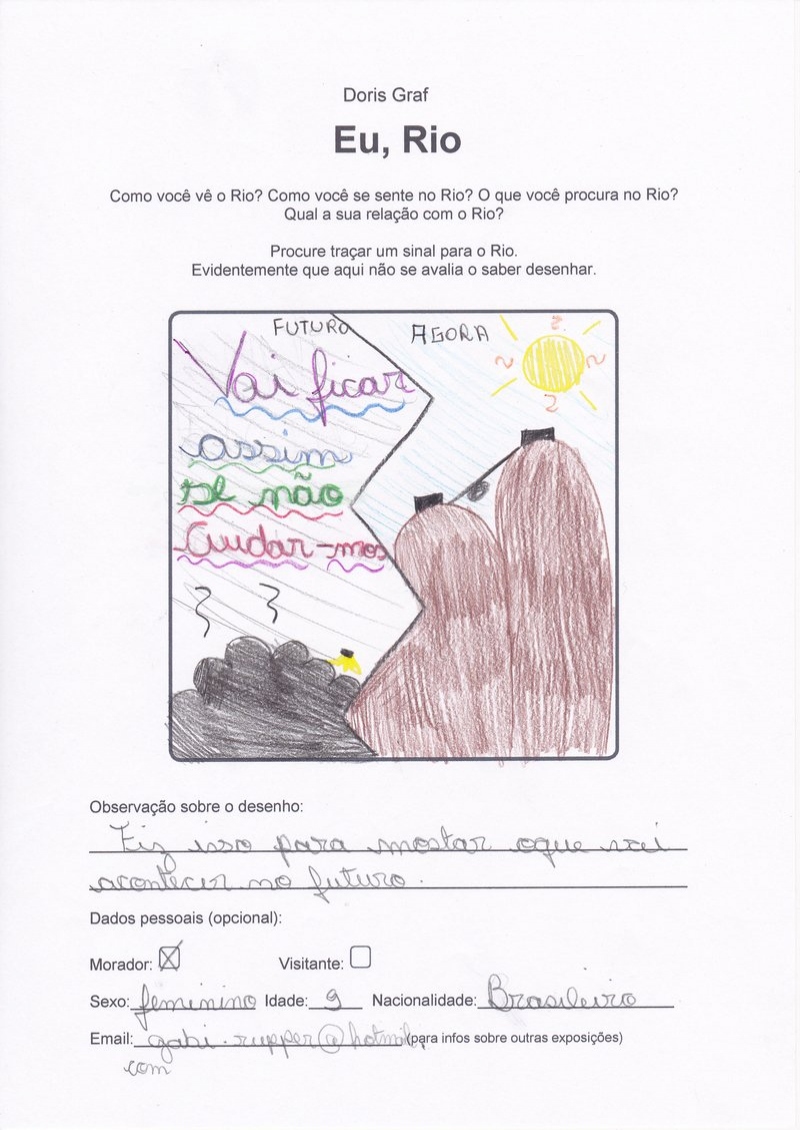 Doris Graf
Eu, Rio
Como você vê o Rio? Como você se sente no Rio? O que você procura no Rio?
Qual a sua relação com o Rio?
Procure traçar um sinal para o Rio.
Evidentemente que aqui não se avalia o saber desenhar.
FUTURO
AGORA
Vai ficar
assim
se não
Cuidar-mos
Observação sobre o desenho:
Fiz isso para mostar oque vai
acontecer no futuro.
Dados pessoais (opcional):
Morador: Visitante:
Sexo: feminino Idade: 9 Nacionalidade: Brasileiro
Email: gabi.rupper@hotmail. (para infos sobre outras exposições)
com